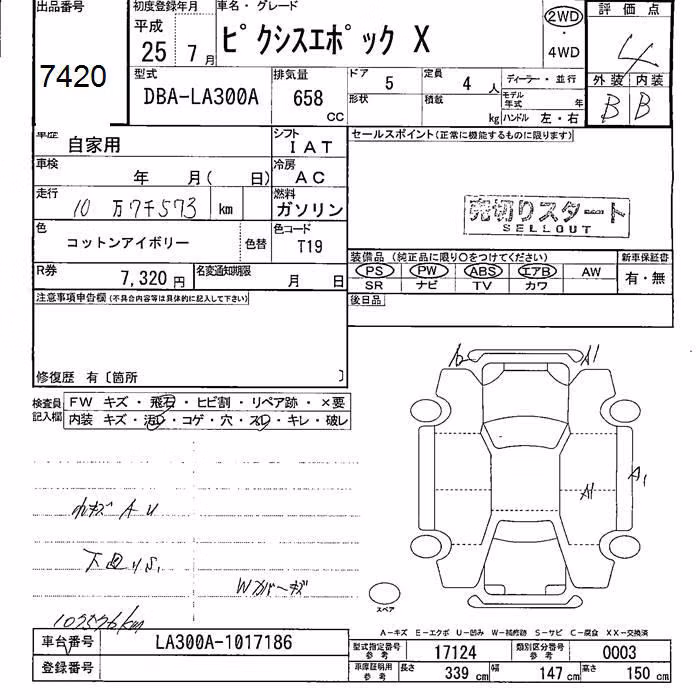 出品番号
7420
初度登録年月
平成
25 年 7 月
車名・グレード
ピクシスエポック X
2WD
・
4WD
評価点
4
外装 内装
B B
型式
DBA-LA300A
排気量
658 CC
ドア 5
定員 4 人
形状
積載 kg
ディーラー・並行
モデル年式 年
ハンドル 左・右
車歴 自家用
シフト IAT
車検 年 月( 日)
冷房 AC
走行 10万7千573 km
燃料 ガソリン
色 コットンアイボリー
色替
色コード T19
R券 7,320 円
名変通知期限 月 日
セールスポイント(正常に機能するものに限ります)
売切りスタート
SELLOUT
装備品 (純正品に限り○をつけてください)
新車保証書
PS PW ABS エアB AW
有・無
SR ナビ TV カワ
後日品
注意事項申告欄(不具合内容等は具体的に記入して下さい)
修復歴 有〔箇所 〕
検査員記入欄
FW キズ・飛石・ヒビ割・リペア跡・×要
内装 キズ・汚レ・コゲ・穴・スレ・キレ・破レ
A2 A1
A1 A1
小キズ A U
下回りS1
Wカバーキズ
スペア
A-キズ E-エクボ U-凹み W-補修跡 S-サビ C-腐食 XX-交換済
車台番号 LA300A-1017186
登録番号
型式指定番号 参考 17124
類別区分番号 参考 0003
車庫証明用 参考 長さ 339 cm 幅 147 cm 高さ 150 cm